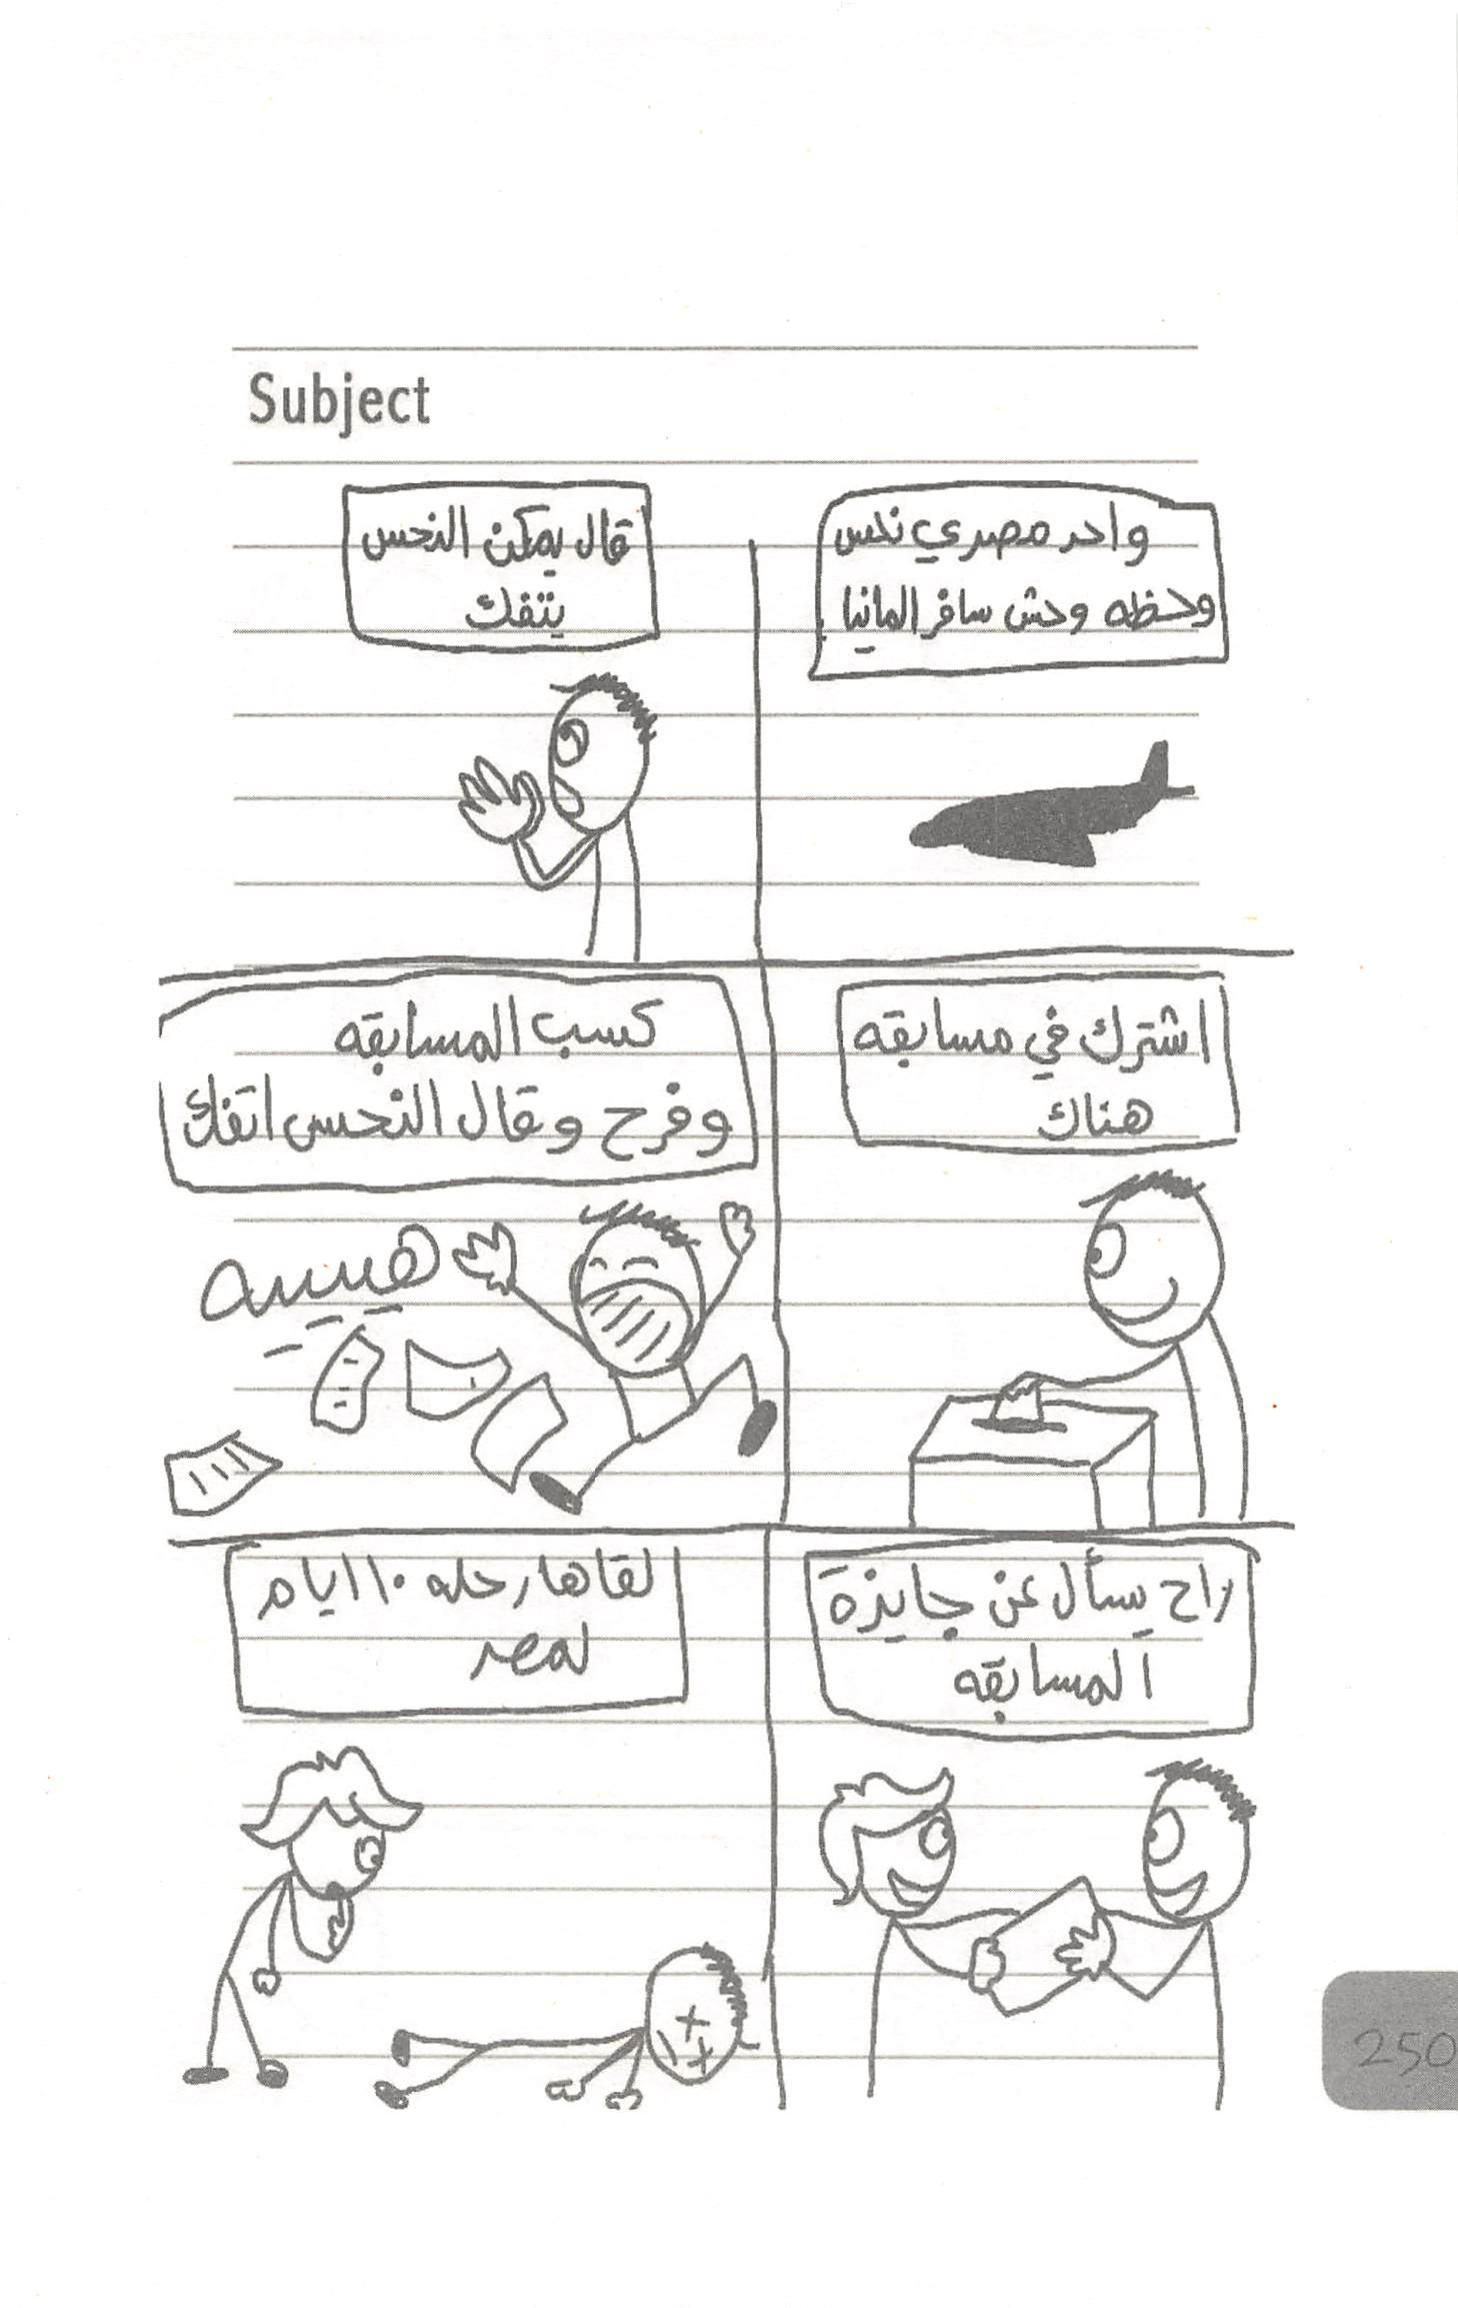 Subject
واحد مصري نحس
وحظه وحش سافر المانيا
قال يمكن النحس
يتفك
اشترك في مسابقه
هناك
كسب المسابقه
وفرح وقال النحس اتفك
هيييه
راح يسأل عن جايزة
المسابقه
لقاها رحله ١٠ ايام
لمصر
250